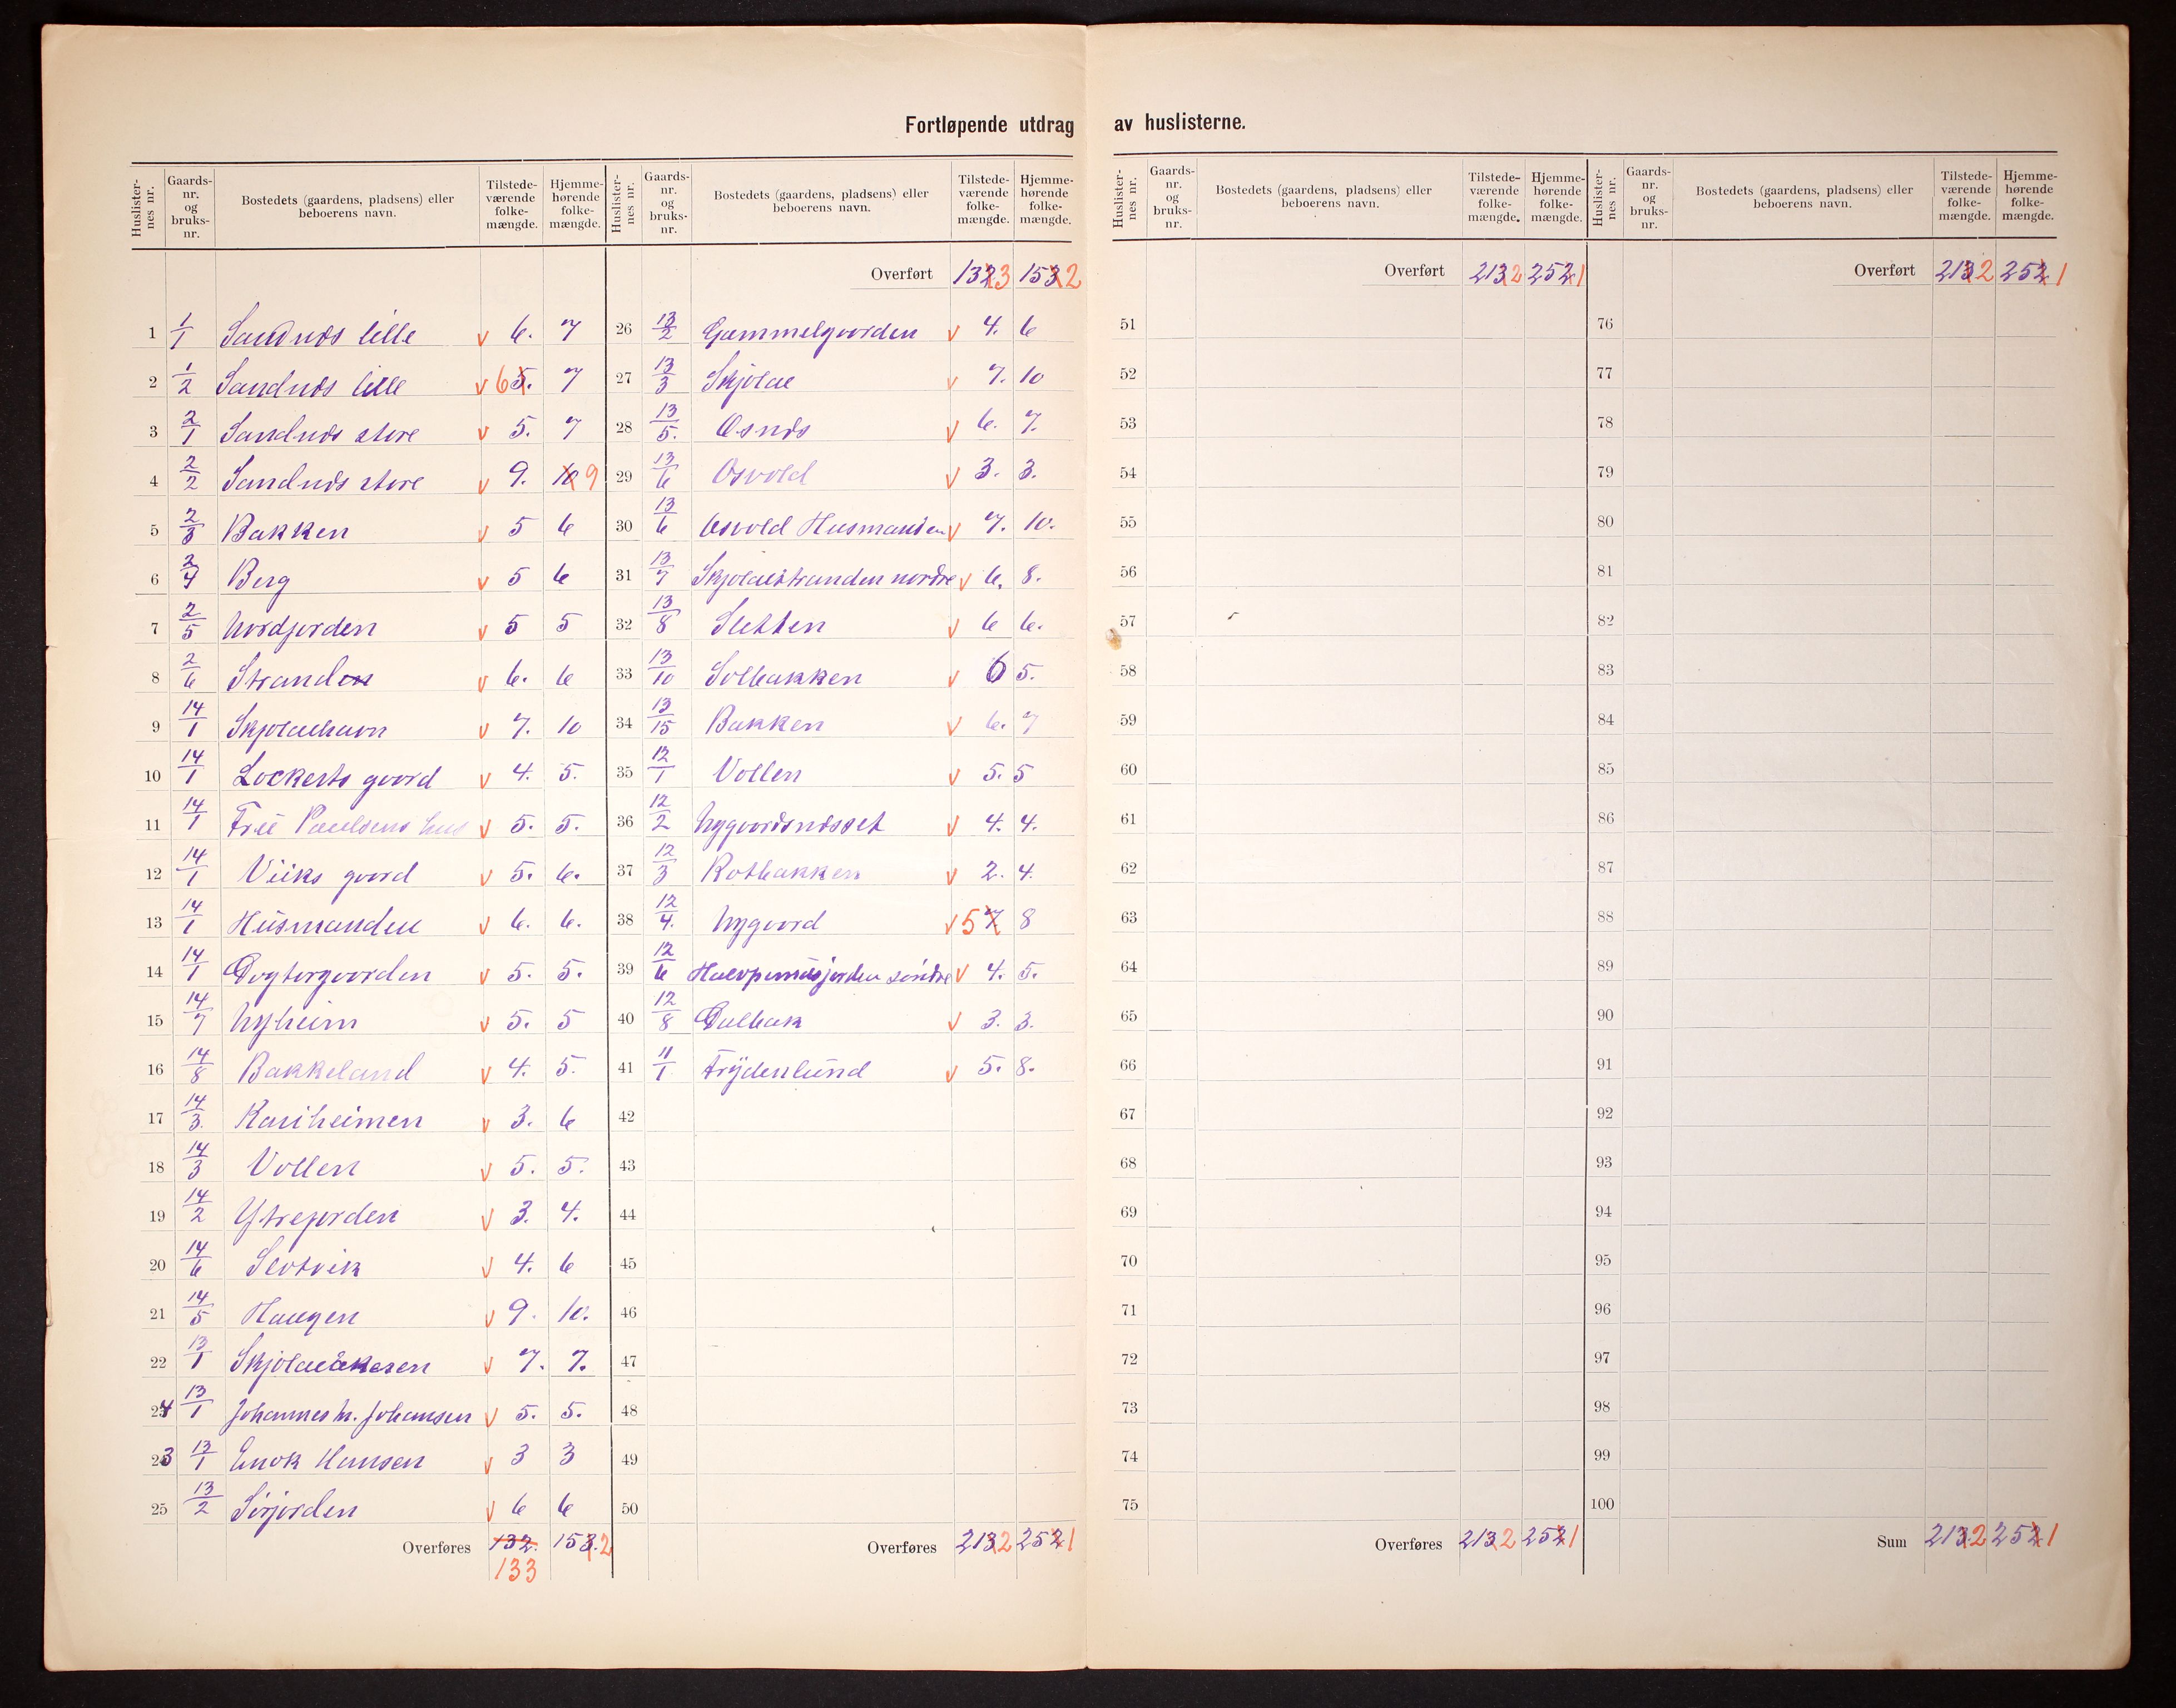 Fortløpende utdrag av huslisterne.
Huslister-nes nr. Gaards-nr. og bruks-nr. Bostedets (gaardens, pladsens) eller beboerens navn. Tilstede-værende folke-mængde. Hjemme-hørende folke-mængde.
1 1/1 Sandnæs lille v 6. 7
2 1/2 Sandnæs lille v 6 5. 7
3 2/1 Sandnæs store v 5. 7
4 2/2 Sandnæs store v 9. 10 9
5 2/3 Bakken v 5 6
6 2/4 Berg v 5 6
7 2/5 Nordjorden v 5 5
8 2/6 Stranden v 6. 6
9 14/1 v 7. 10
10 14/1 Lockerts goord v 4. 5.
11 14/1 Fru Paulsens hus v 5. 5.
12 14/1 Viiks goord v 5. 6.
13 14/1 Husmanden v 6. 6.
14 14/1 Dogtorgoorden v 5. 5.
15 14/7 Nyheim v 5. 5
16 14/8 Bakkeland v 4. 5.
17 14/3. Kariheimen v 3. 6
18 14/3 Vollen v 5. 5.
19 14/2 Ytrejorden v 3. 4.
20 14/6 v 4. 6
21 14/5 Haugen v 9. 10.
22 13/1 v 7. 7.
24 13/1 Johannes N. Johansen v 5. 5.
23 13/1 Enok Hansen v 3 3
25 13/2 Sørjorden v 6 6
Overføres 132. 153. 2
133
Huslister-nes nr. Gaards-nr. og bruks-nr. Bostedets (gaardens, pladsens) eller beboerens navn. Tilstede-værende folke-mængde. Hjemme-hørende folke-mængde.
Overført 132 3 153 2
26 13/2 Gammelgoorden v 4. 6
27 13/3 v 7. 10
28 13/5. Osnæs v 6. 7.
29 13/6 Osvold v 3. 3.
30 13/6 Osvold Husmanden v 7. 10.
31 13/7 nordre v 6. 8.
32 13/8 Sletten v 6 6.
33 13/10 Solbakken v 6 5.
34 13/15 Bakken v 6. 7
35 12/1 Vollen v 5. 5
36 12/2 Nygoordsnæsset v 4. 4.
37 12/3 Kotbakken v 2. 4.
38 12/4. Nygoord v 5 7 8
39 12/6 søndre v 4. 5.
40 12/8 Dalbak v 3. 3.
41 11/1 Frydenlund v 5. 8.
42
43
44
45
46
47
48
49
50
Overføres 213 2 252 1
Huslister-nes nr. Gaards-nr. og bruks-nr. Bostedets (gaardens, pladsens) eller beboerens navn. Tilstede-værende folke-mængde. Hjemme-hørende folke-mængde.
Overført 213 2 252 1
51
52
53
54
55
56
57
58
59
60
61
62
63
64
65
66
67
68
69
70
71
72
73
74
75
Overføres 213 2 252 1
Huslister-nes nr. Gaards-nr. og bruks-nr. Bostedets (gaardens, pladsens) eller beboerens navn. Tilstede-værende folke-mængde. Hjemme-hørende folke-mængde.
Overført 213 2 252 1
76
77
78
79
80
81
82
83
84
85
86
87
88
89
90
91
92
93
94
95
96
97
98
99
100
Sum 213 2 252 1